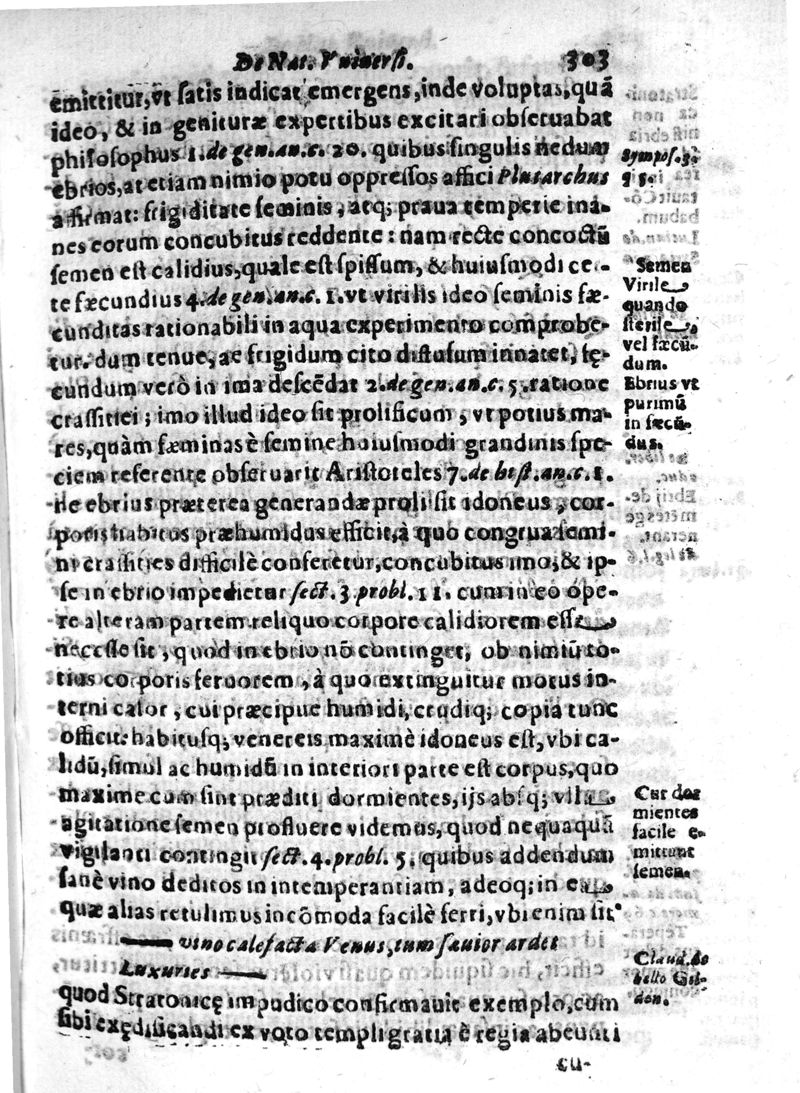 De Nat. Vniuersi. 303
emittitur, vt satis indicat emergens, inde voluptas, quã
ideo, & in genituræ expertibus excitari obseruabat
philosophus 1. de gen. an. c. 20. quibus singulis nedum
ebrios, at etiam nimio potu oppressos affici Plutarchus
affirmat: frigiditate seminis, atq; praua temperie iná-
nes eorum concubitus reddente: nam recte concoctũ
semen est calidius, quale est spissum, & huiusmodi cer-
te fæcundius 4. de gen. an. c. 1. vt virilis ideo seminis fæ-
cunditas rationabili in aqua experimento comprobe-
tur. dum tenue, ac frigidum cito diffusum innatet, fę-
cundum verò in ima descẽdat 2. de gen. an. c. 5. ratione
crassitiei; imo illud ideo sit prolificum, vt potius ma-
res, quàm fæminas è semine huiusmodi grandinis spe-
ciem referente obseruarit Aristoteles 7. de hist. an. c. 1.
ne ebrius præterea generandæ proli sit idoneus, cor-
poris habitus præhumidus efficit, à quo congrua semi-
ni crassities difficilè conferetur, concubitus imo, & ip-
se in ebrio impedietur sect. 3 probl. 11. cum in eo ópe-
re alteram partem reliquo corpore calidiorem esse
necesse sit, quod in ebrio nõ continget, ob nimiũ to-
tius corporis feruorem, à quo extinguitur motus in-
terni calor, cui præcipue humidi, crudiq; copia tunc
officit: habitusq; venereis maximè idoneus est, vbi ca-
lidũ, simul ac humidũ in interiori parte est corpus, quo
maxime cum sint præditi dormientes, ijs absq; vlla
agitatione semen profluere videmus, quod nequaquã
vigilanti contingit sect. 4. probl. 5. quibus addendum
sanè vino deditos in intemperantiam, adeoq; in ea
quæ alias retulimus incõmoda facilè ferri, vbi enim sit
vino calefacta Venus, tum sauior ardet
Luxuries
quod Stratonicę impudico confirmauit exemplo, cum
sibi exędificandi ex voto templi gratia è regia abeunti
cu-
Sympos. 3.
q 5.
Semen
Virile
quando
sterile,
vel fæcũ-
dum.
Ebrius vt
purimũ
in fæcũ-
dus.
Cur dor
mientes
facile e-
mittunt
semen.
Claud. de
bello Gil-
don.